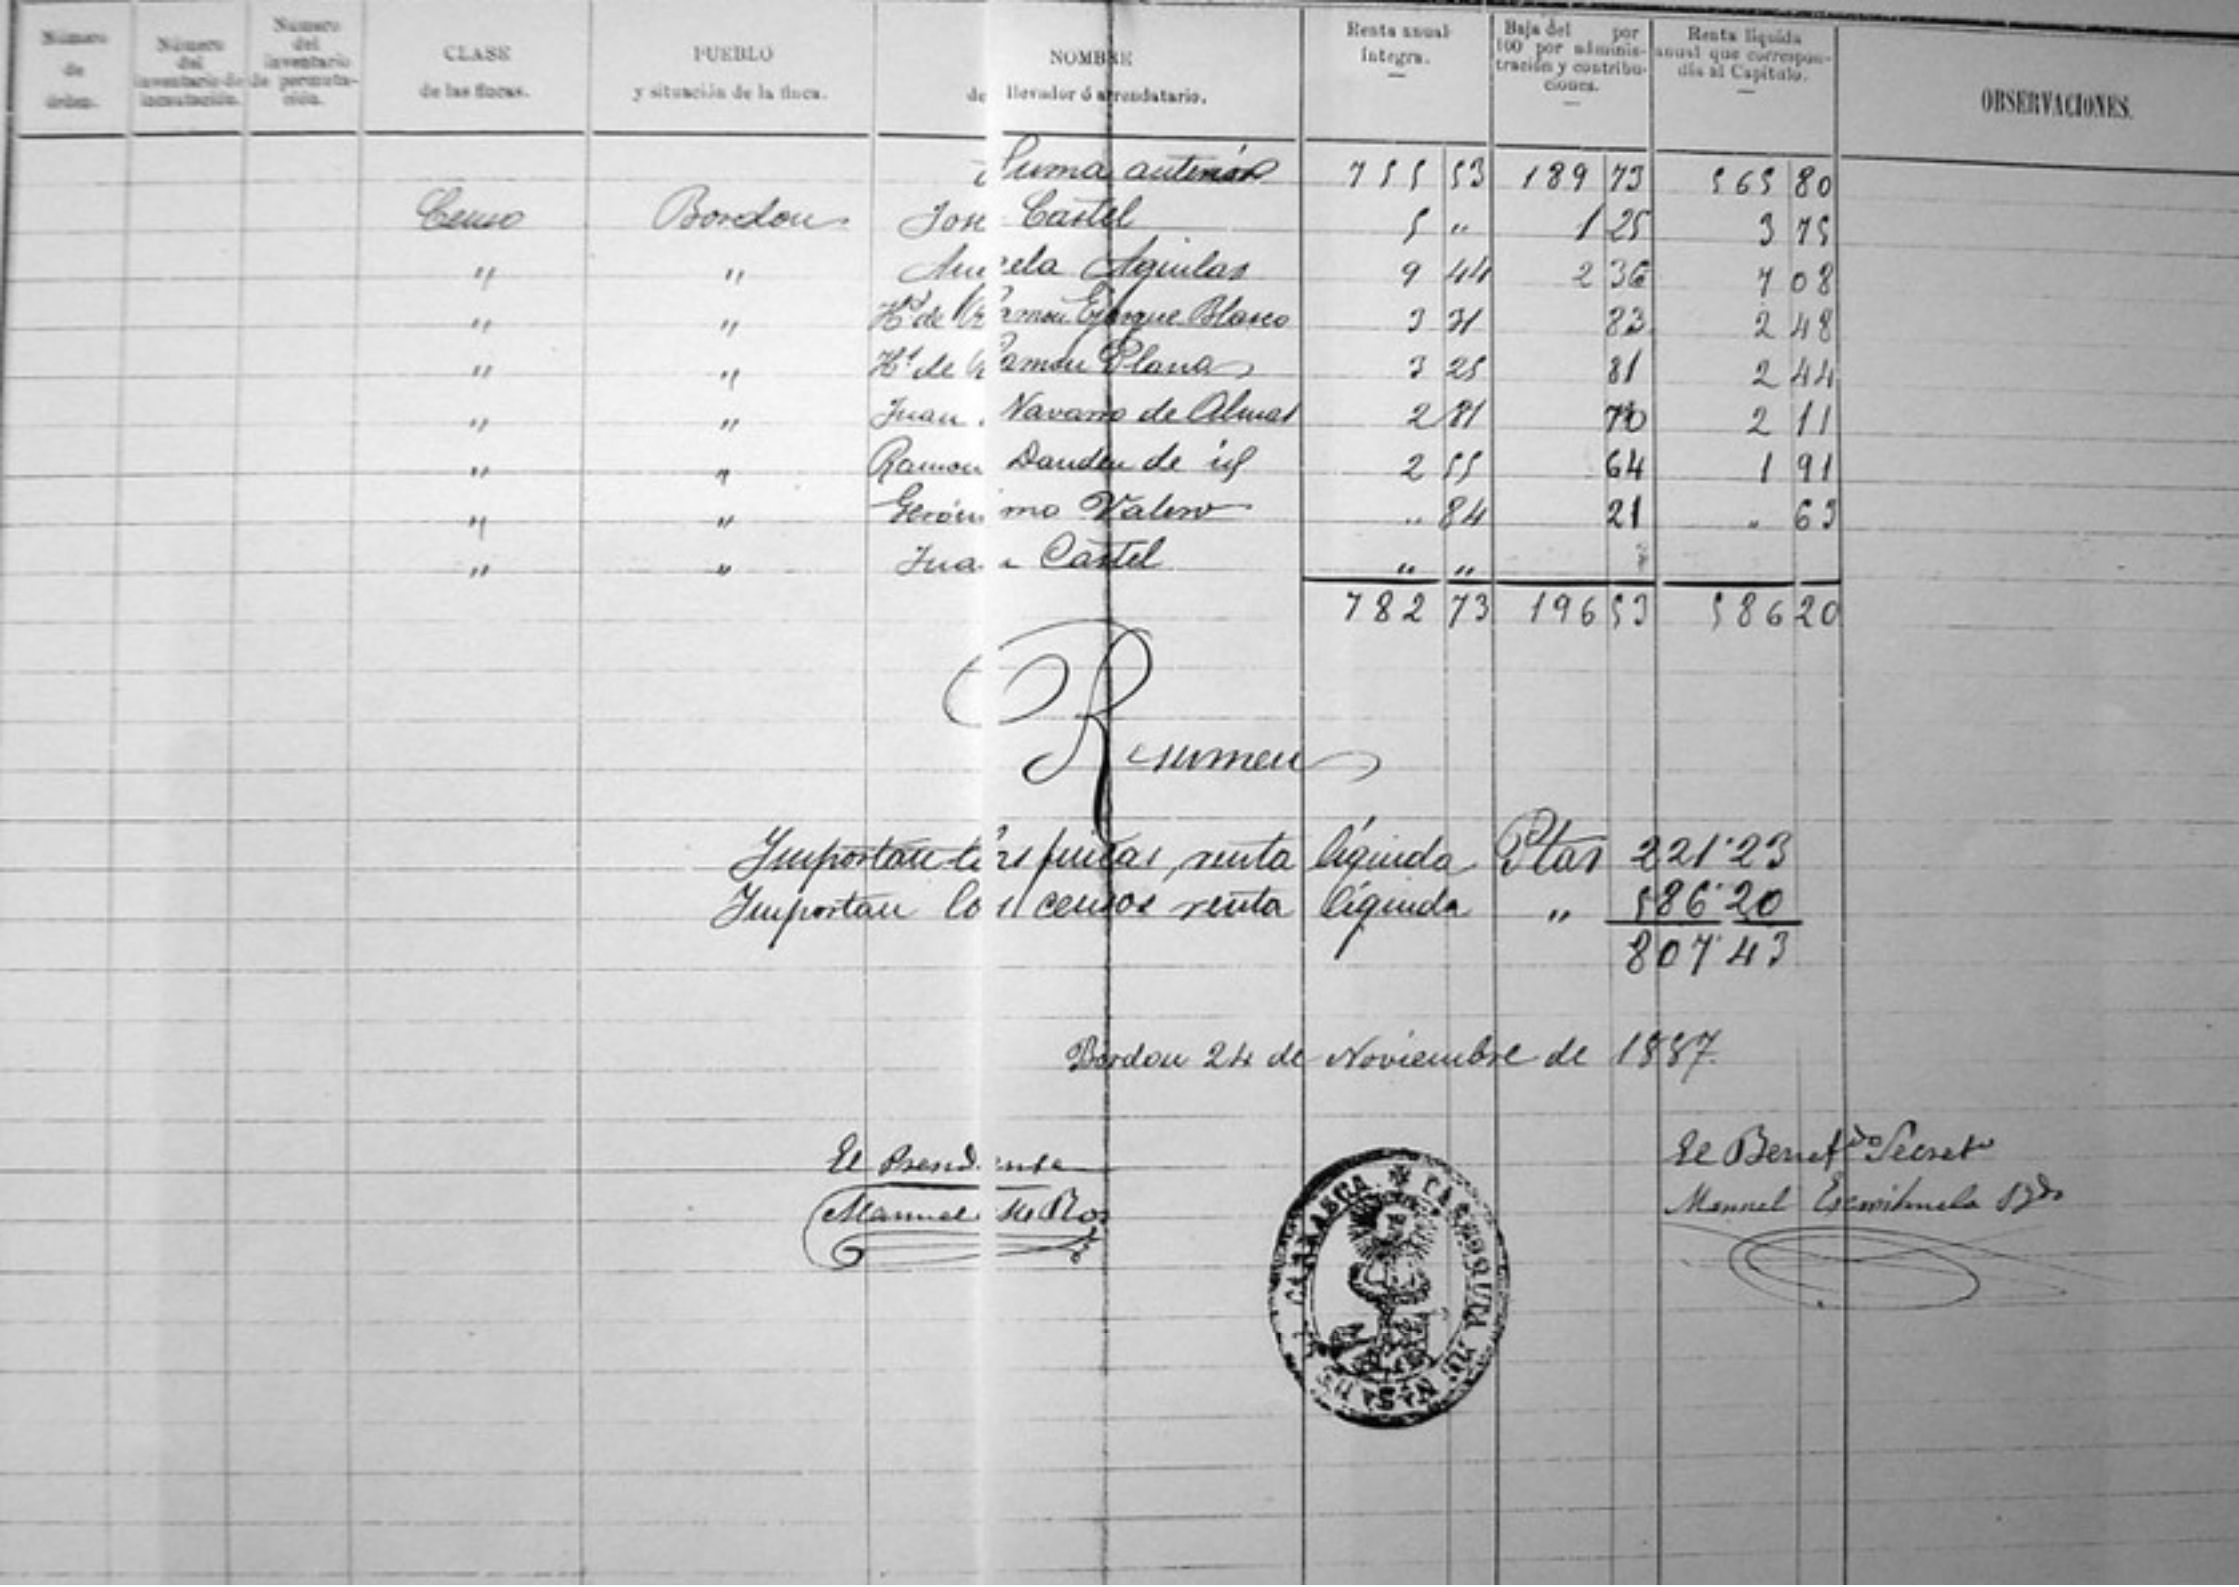 Número de órden.
Número del inventario de incautación.
Número del inventario de permuta-ción.
CLASE de las fincas.
PUEBLO y situación de la finca.
NOMBRE del llevador ó arrendatario.
Renta anual íntegra.
Baja del por 100 por adminis-tración y contribu-ciones.
Renta líquida anual que correspon-día al Capítulo.
OBSERVACIONES.
Suma anterior 755 53 189 73 565 80
Censo Bordon José Castel 5 " 1 25 3 75
" " Aguilar 9 44 2 36 7 08
" " Hs de Ramon Ejarque Blasco 3 31 83 2 48
" " Hs de Ramon Plana 3 25 81 2 44
" " Juan Navarro de 2 81 70 2 11
" " Ramon Dauden de id 2 55 64 1 91
" " Gerónimo Valero " 84 21 " 63
" " Juan Castel " "
782 73 196 53 586 20
Resumen
Importan las fincas, renta líquida Ptas 221'23
Importan los censos renta líquida " 586'20
807'43
Bordon 24 de Noviembre de 1887.
El Presidente
El Benefdo Secreto
Manuel Ros
Manuel Escorihuela
PARROQUIA DE Na Sa DE LA CARRASCA